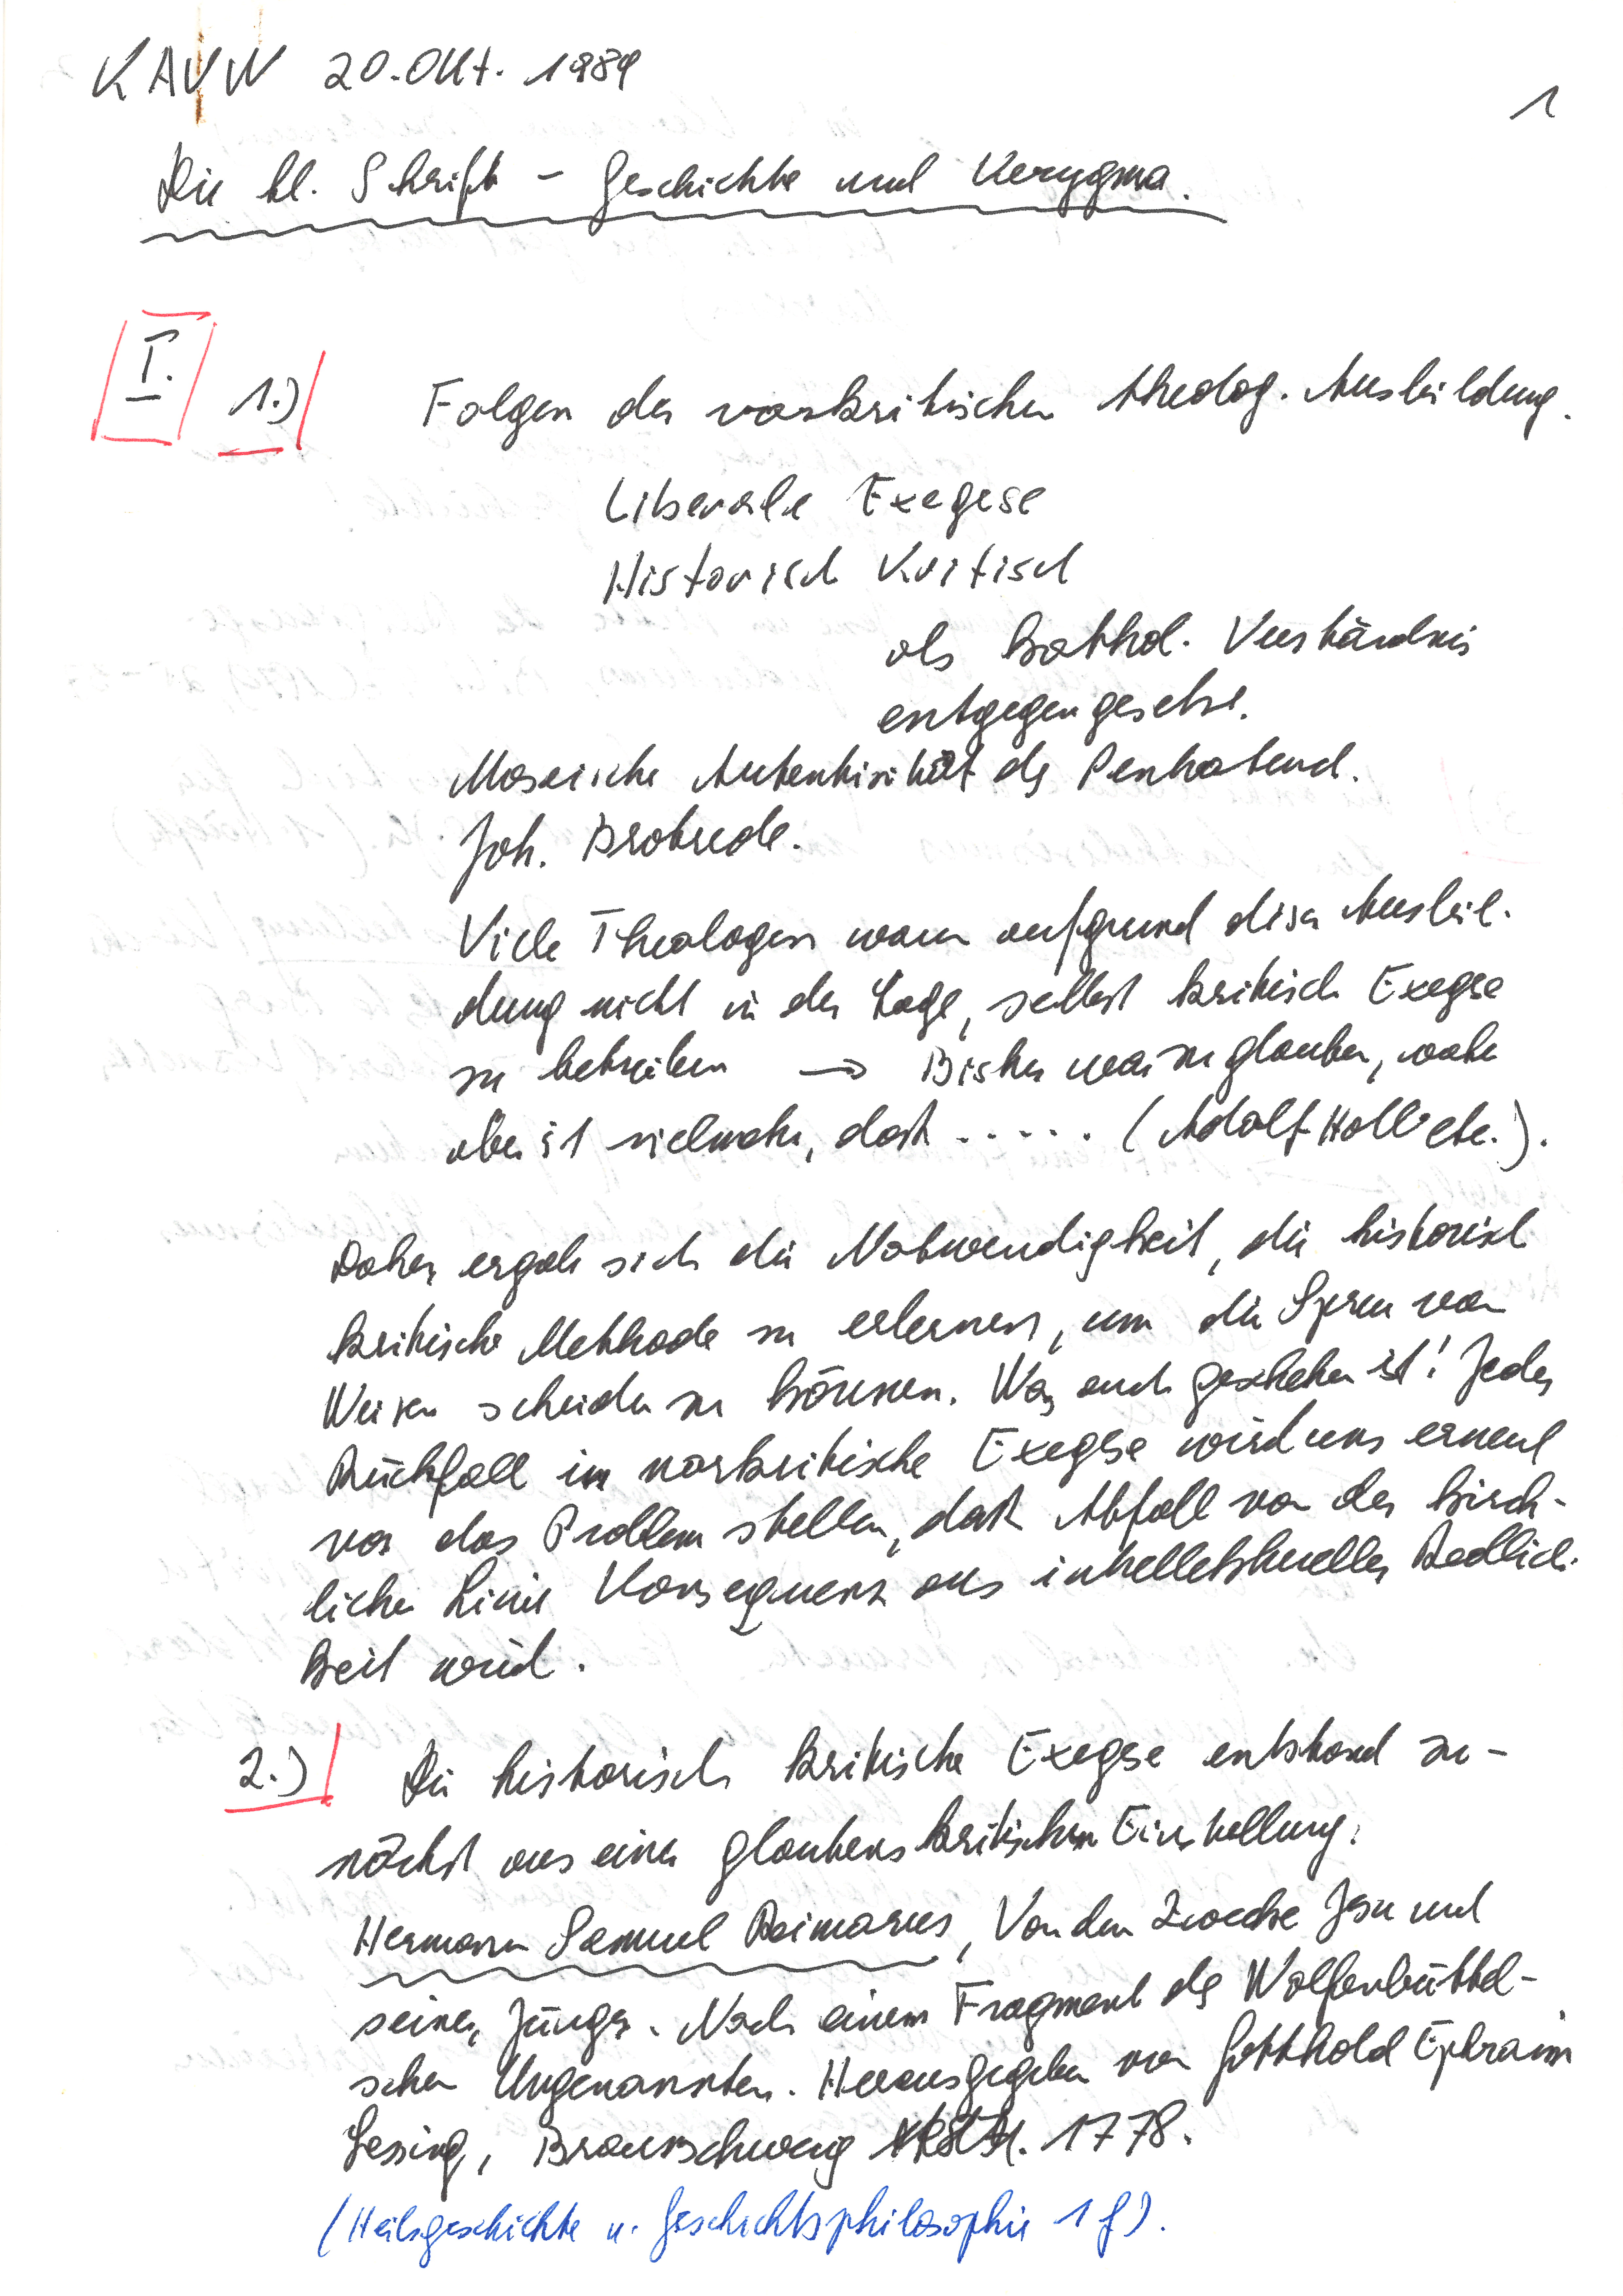 KAVW 20. Okt. 1989
1
Die hl. Schrift - Geschichte und Kerygma.
I.
1.) Folgen der vorkritischen theolog. Ausbildung.
Liberale Exegese
Historisch Kritisch
als kathol. Verständnis
entgegengesetzt.
Mosaische Autentizität des Pentateuch.
Joh. Brotrede.
Viele Theologen waren aufgrund dieser Ausbil-
dung nicht in der Lage, selbst kritisch Exegese
zu betreiben → Bisher war zu glauben, wahr
aber ist vielmehr, daß ..... (Adolf Holl etc.).
Daher ergab sich die Notwendigkeit, die historisch
kritische Methode zu erlernen, um die Spreu von
Weizen scheiden zu können. Was auch geschehen ist! Jeder
Rückfall in vorkritische Exegese wird uns erneut
vor das Problem stellen, daß Abfall von der kirch-
lichen Linie Konsequenz aus intellektueller Redlich-
keit wird.
2.) Die historisch kritische Exegese entstand zu-
nächst aus einer glaubenskritischen Einstellung.
Hermann Samuel Reimarus, Von dem Zwecke Jesu und
seiner Jünger. Noch einem Fragment des Wolfenbüttel-
schen Ungenannten. Herausgegeben von Gotthold Ephraim
Lessing, Braunschweig 1778.
(Heilsgeschichte u. Geschichtsphilosophie 1 f).